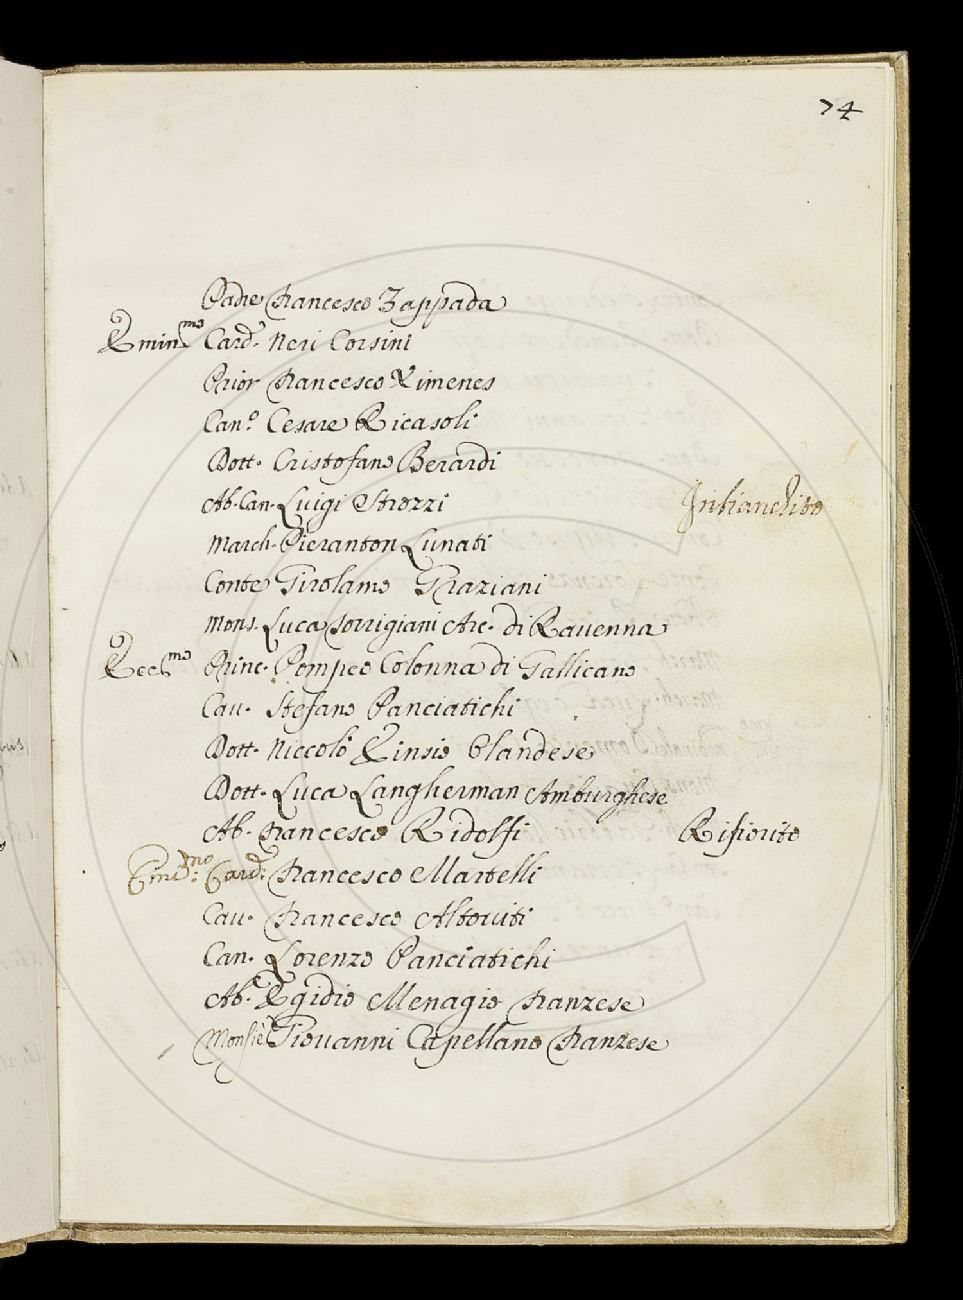 74
Padre Francesco Zappada
Emin.mo Card. Neri Corsini
Prior Francesco Ximenes
Can.o Cesare Ricasoli
Dott. Cristofano Berardi
Ab. Can. Luigi Strozzi Inbianchito
March. Pieranton Lunati
Conte Girolamo Graziani
Mons. Luca Torrigiani Arc. di Ravenna
Ecc.mo Princ. Pompeo Colonna di Gallicano
Cav. Stefano Panciatichi
Dott. Niccolò Einsio Olandese
Dott. Luca Langherman Amburghese
Ab. Francesco Ridolfi Rifiorito
Emin.mo Card. Francesco Martelli
Cav. Francesco Altoviti
Can. Lorenzo Panciatichi
Ab.e Egidio Menagio Franzese
Monsiè Giovanni Capellano Franzese